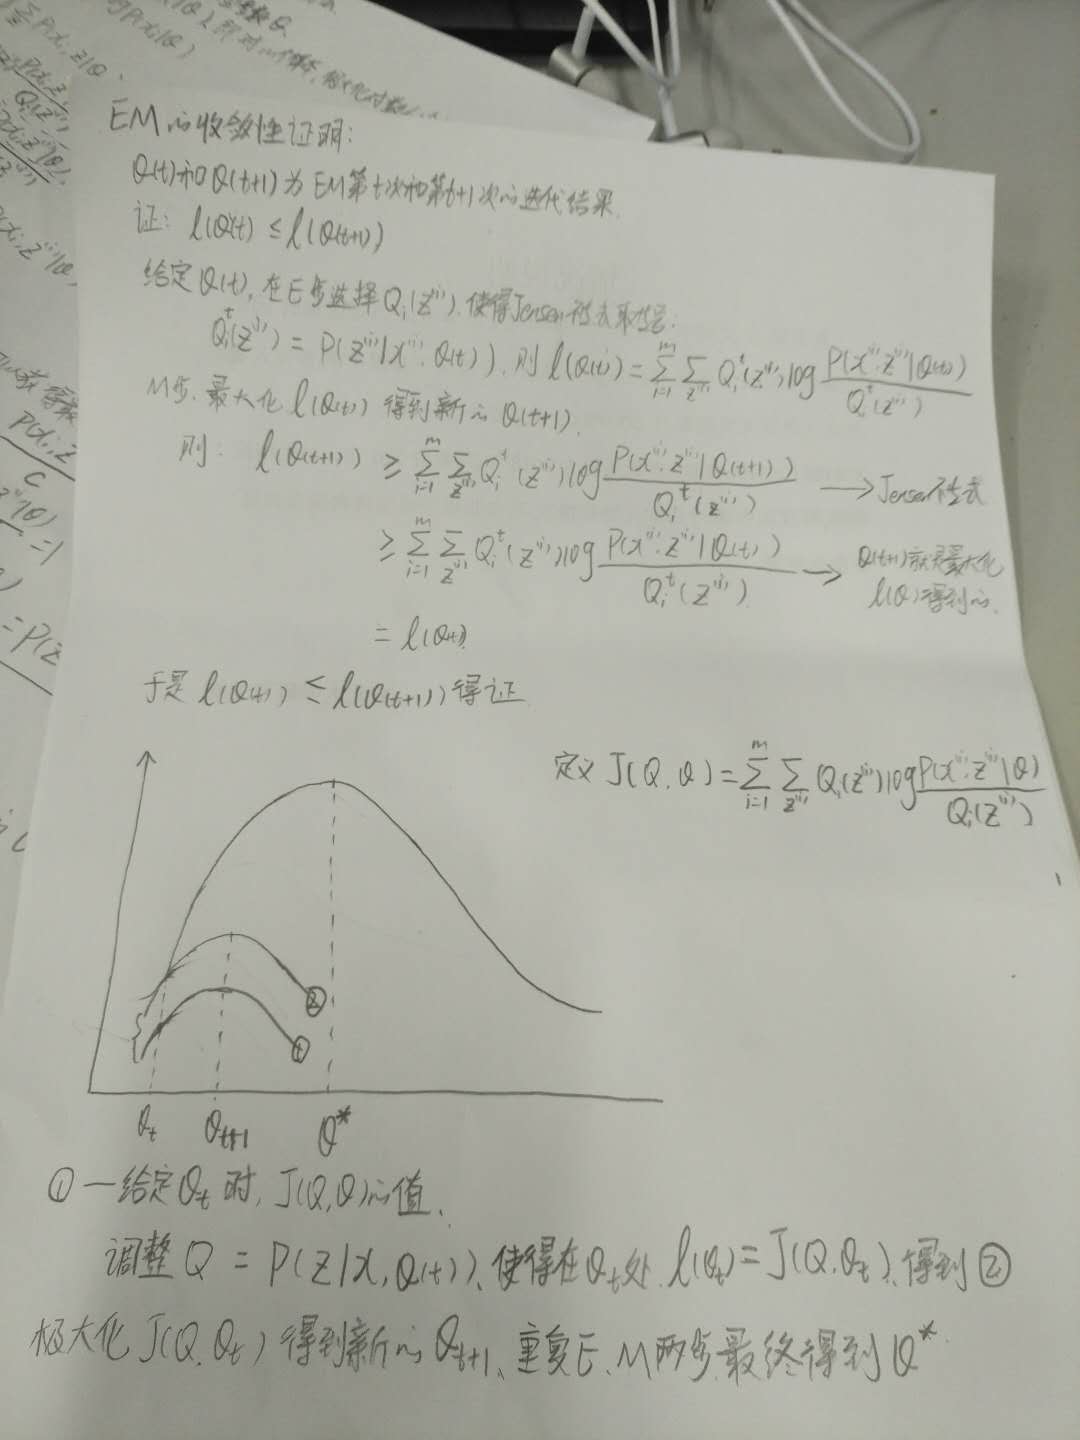 EM的收敛性证明:
θ(t)和θ(t+1)为EM第t次和第t+1次的迭代结果.
证: l(θ(t)) ≤ l(θ(t+1))
给定θ(t), 在E步选择Qi(z⁽ⁱ⁾), 使得Jensen不等式取等号:
Qiᵗ(z⁽ⁱ⁾) = P(z⁽ⁱ⁾|x⁽ⁱ⁾; θ(t)). 则 l(θ(t)) = ∑_{i=1}^{m} ∑_{z⁽ⁱ⁾} Qiᵗ(z⁽ⁱ⁾) log P(x⁽ⁱ⁾, z⁽ⁱ⁾|θ(t)) / Qiᵗ(z⁽ⁱ⁾)
M步. 最大化 l(θ(t)) 得到新的 θ(t+1).
则: l(θ(t+1)) ≥ ∑_{i=1}^{m} ∑_{z⁽ⁱ⁾} Qiᵗ(z⁽ⁱ⁾) log P(x⁽ⁱ⁾, z⁽ⁱ⁾|θ(t+1)) / Qiᵗ(z⁽ⁱ⁾) → Jensen不等式
≥ ∑_{i=1}^{m} ∑_{z⁽ⁱ⁾} Qiᵗ(z⁽ⁱ⁾) log P(x⁽ⁱ⁾, z⁽ⁱ⁾|θ(t)) / Qiᵗ(z⁽ⁱ⁾) → θ(t+1)就是最大化
l(θ)得到的.
= l(θ(t)).
于是 l(θ(t)) ≤ l(θ(t+1)) 得证
定义 J(Q, θ) = ∑_{i=1}^{m} ∑_{z⁽ⁱ⁾} Qi(z⁽ⁱ⁾) log P(x⁽ⁱ⁾, z⁽ⁱ⁾|θ) / Qi(z⁽ⁱ⁾)
②
①
θt θt+1 θ*
① 一给定θt 时, J(Q, θ)的值.
调整 Q = P(z|x, θ(t)), 使得在θt处 l(θt) = J(Q, θt), 得到 ②
极大化 J(Q, θt) 得到新的 θt+1, 重复E、M两步, 最终得到 θ*